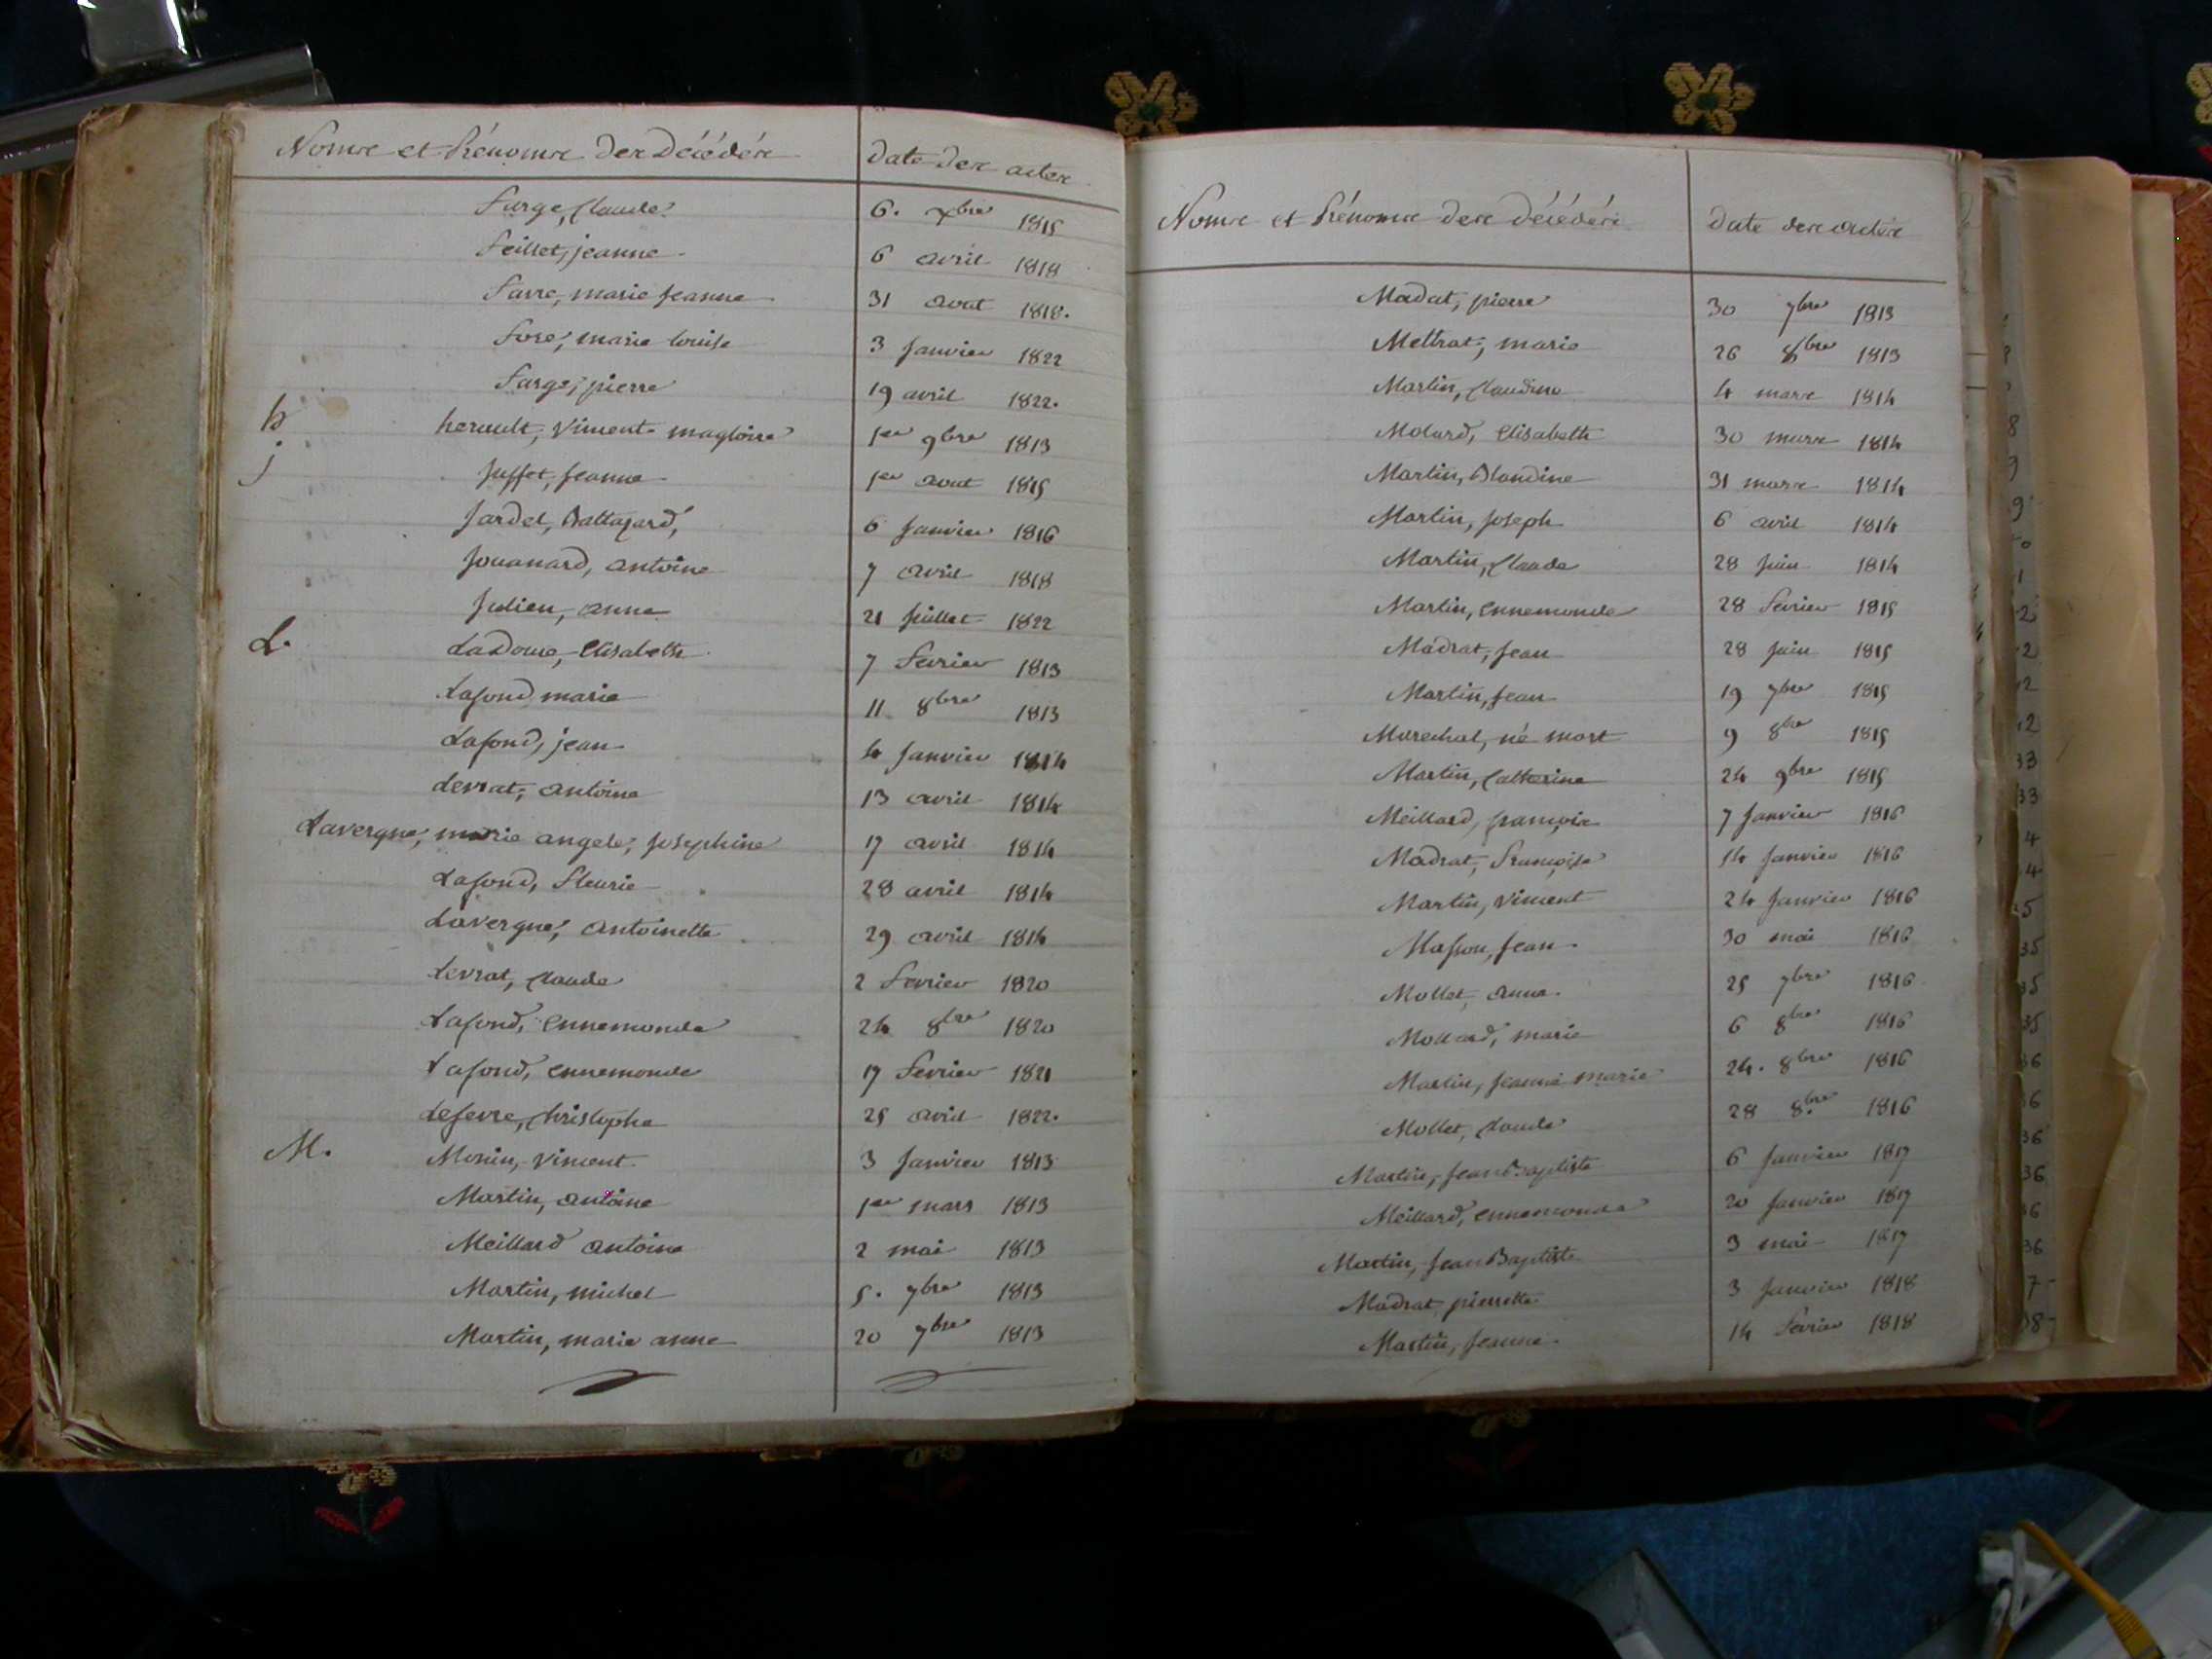 Noms et Prénoms des Décédés Date des actes
Farge, Claude 6. xbre 1815
Feillet, jeanne 6 avril 1818
Favre, marie jeanne 31 aout 1818.
Fore, marie louise 3 Janvier 1822
Farge, pierre 19 avril 1822.
h herault, Vincent magloire 1er 9bre 1813
j Juffet, Jeanne 1er aout 1815
Jardet, Baltazard, 6 Janvier 1816
Jouanard, antoine 7 avril 1818
Julien, anne 21 Juillet 1822
L. Ladoue, Elisabeth 7 Fevrier 1813
Lafond marie 11 8bre 1813
Lafond, jean 4 Janvier 1814
Levrat, antoine 13 avril 1814
Lavergne, marie angele, Josephine 17 avril 1814
Lafond, Fleurie 28 avril 1814
Lavergne, antoinette 29 avril 1814
Levrat, Claude 2 Fevrier 1820
Lafond, Ennemonde 24 8bre 1820
Lafond, Ennemonde 17 Fevrier 1821
Lefevre, Christophe 25 avril 1822.
M. Monin, Vincent 3 Janvier 1813
Martin, antoine 1er mars 1813
Meillard antoine 2 mai 1813
Martin, michel 5. 7bre 1813
Martin, marie anne 20 7bre 1813
Noms et Prénoms des décédés Date des actes
Madat, pierre 30 7bre 1813
Mettrat, marie 26 8bre 1813
Martin, Claudine 4 mars 1814
Molard, Elisabeth 30 mars 1814
Martin, Blandine 31 mars 1814
Martin, Joseph 6 avril 1814
Martin, Claude 28 Juin 1814
Martin, Ennemonde 28 Fevrier 1815
Madrat, Jean 28 Juin 1815
Martin, Jean 19 7bre 1815
Marechal, né mort 9 8bre 1815
Martin, Catherine 24 9bre 1815
Meillard, françois 7 Janvier 1816
Madrat, Françoise 14 Janvier 1816
Martin, Vincent 24 Janvier 1816
Masson, Jean 30 mai 1816
Mollet, anne 25 7bre 1816
Mollard, marie 6 8bre 1816
Martin, Jeanne marie 24. 8bre 1816
Mollet, Claude 28 8bre 1816
Martin, Jean Baptiste 6 Janvier 1817
Meillard, Ennemonde 20 Janvier 1817
Martin, Jean Baptiste 3 mai 1817
Madrat pierrette 3 Janvier 1818
Martin, Jeanne 14 Fevrier 1818